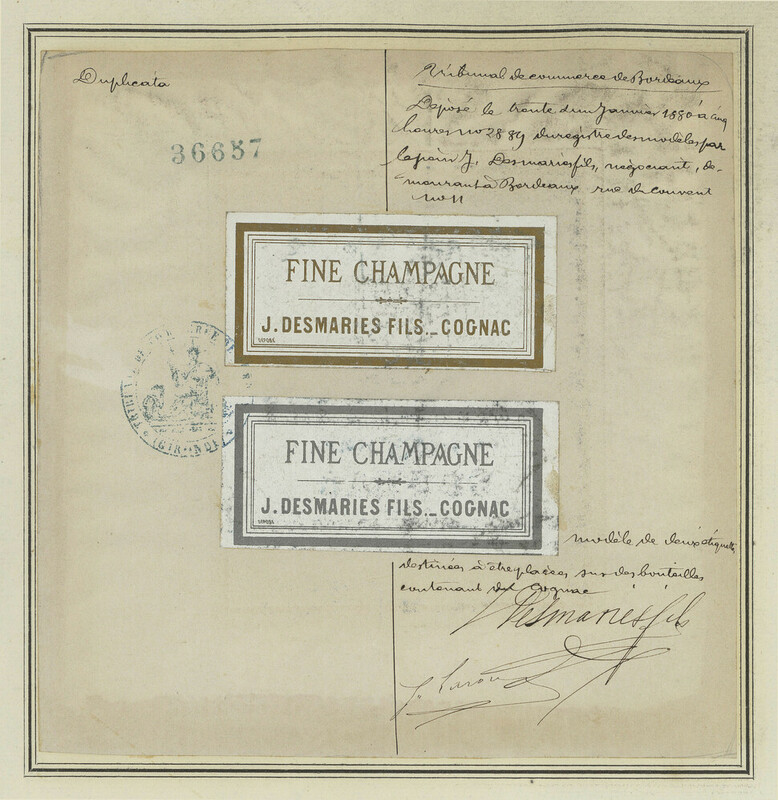 Duplicata
36657
Tribunal de commerce de Bordeaux
Déposé le trente d'un Janvier 1880 à cinq
heures no 2889 du registre des modèles par
J. Desmaries fils, négociant, de-
meurant à Bordeaux rue du couvent
no 11
FINE CHAMPAGNE
J. DESMARIES FILS._COGNAC
TRIBUNAL DE COMMERCE DE
(GIRONDE)
FINE CHAMPAGNE
J. DESMARIES FILS._COGNAC
modèle de deux étiquettes
destinées à être placées sur des bouteilles
contenant du Cognac
J Desmaries fils